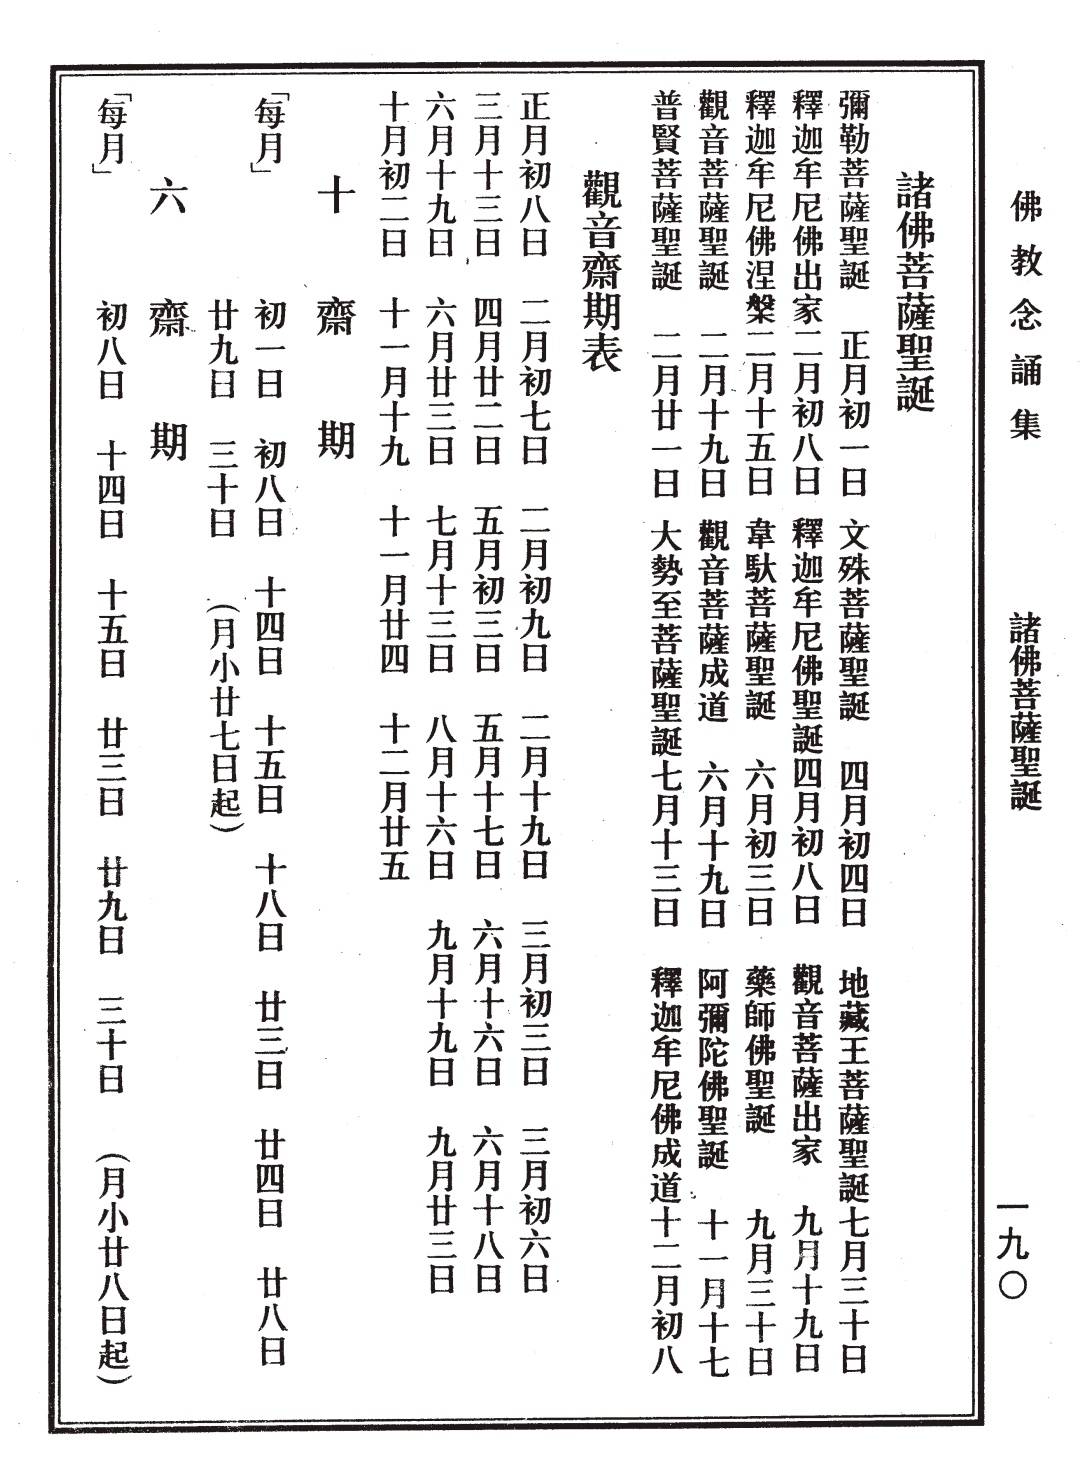 佛教念誦集　諸佛菩薩聖誕　一九〇
諸佛菩薩聖誕
彌勒菩薩聖誕　正月初一日　文殊菩薩聖誕　四月初四日　地藏王菩薩聖誕七月三十日
釋迦牟尼佛出家二月初八日　釋迦牟尼佛聖誕四月初八日　觀音菩薩出家　九月十九日
釋迦牟尼佛涅槃二月十五日　韋馱菩薩聖誕　六月初三日　藥師佛聖誕　九月三十日
觀音菩薩聖誕　二月十九日　觀音菩薩成道　六月十九日　阿彌陀佛聖誕　十一月十七
普賢菩薩聖誕　二月廿一日　大勢至菩薩聖誕七月十三日　釋迦牟尼佛成道十二月初八
觀音齋期表
正月初八日　二月初七日　二月初九日　二月十九日　三月初三日　三月初六日
三月十三日　四月廿二日　五月初三日　五月十七日　六月十六日　六月十八日
六月十九日　六月廿三日　七月十三日　八月十六日　九月十九日　九月廿三日
十月初二日　十一月十九　十一月廿四　十二月廿五
十齋期
「每月」　初一日　初八日　十四日　十五日　十八日　廿三日　廿四日　廿八日
廿九日　三十日　（月小廿七日起）
六齋期
「每月」　初八日　十四日　十五日　廿三日　廿九日　三十日　（月小廿八日起）